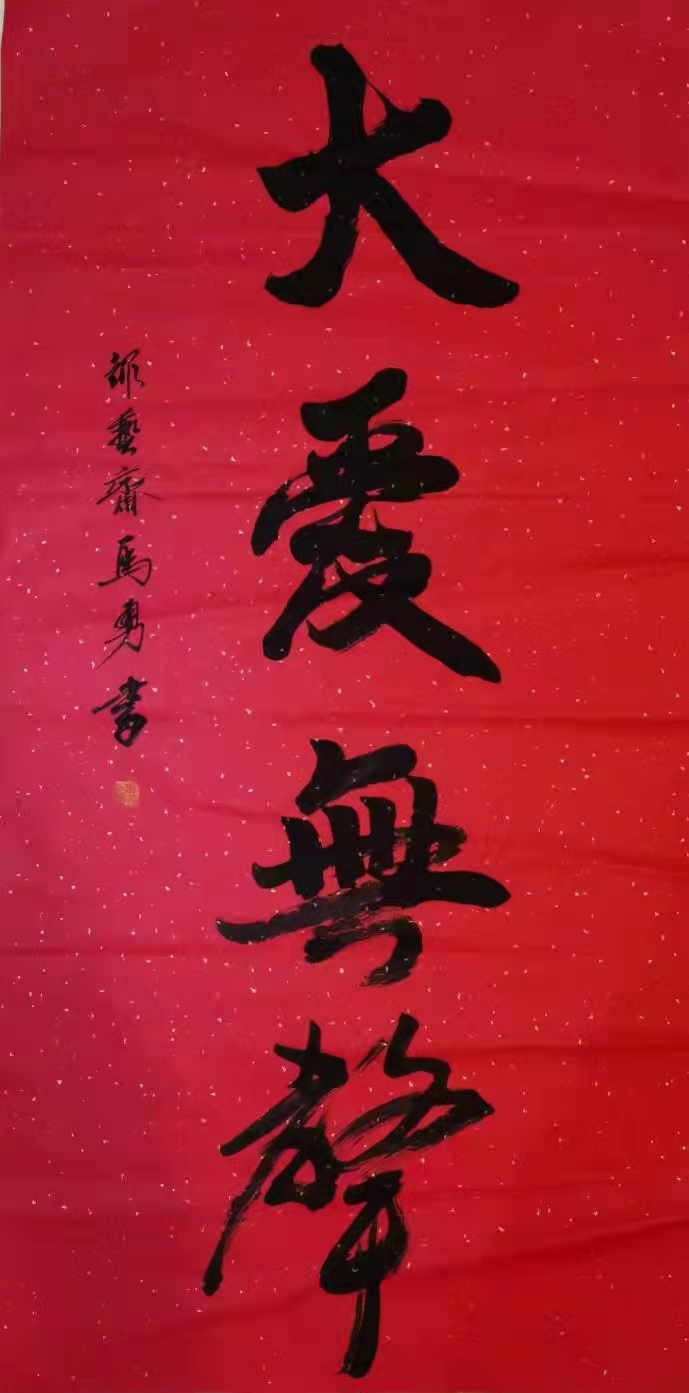 大愛無聲
藝齋馬勇書